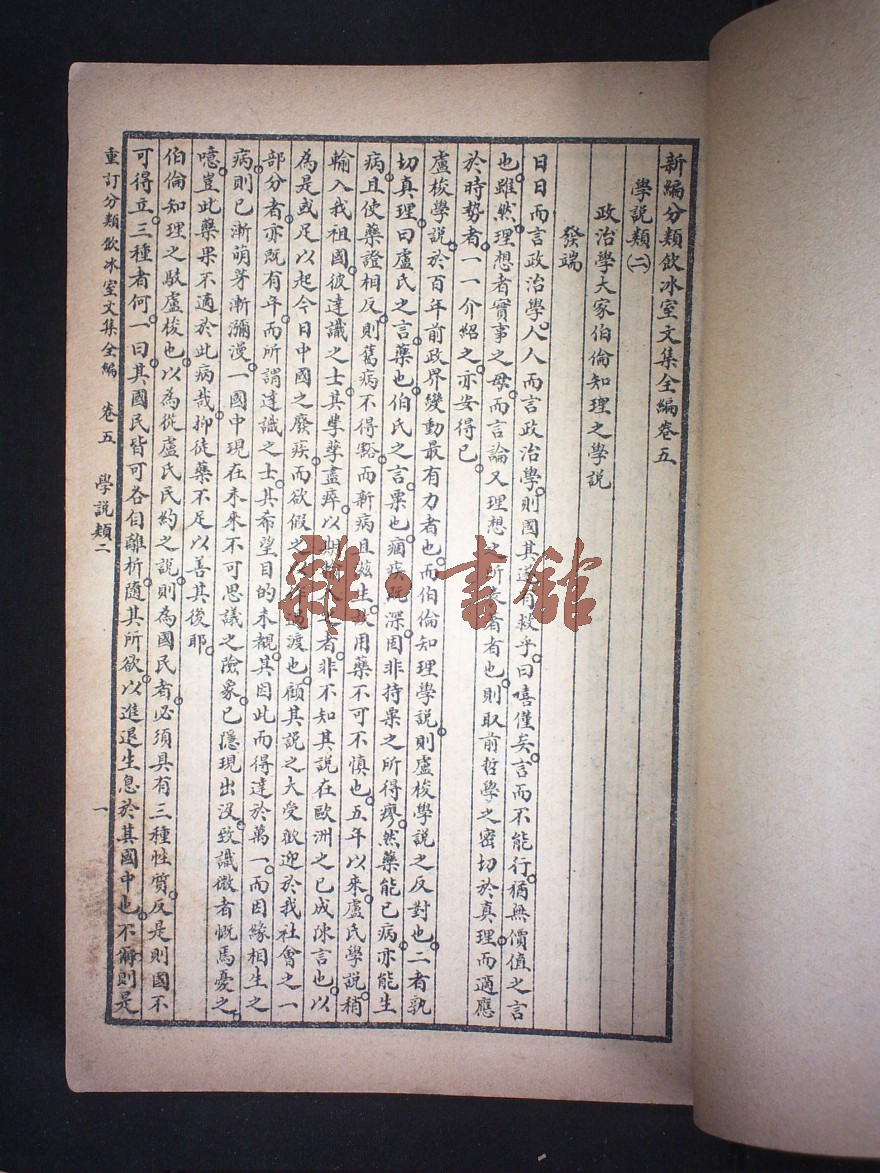 新編分類飲冰室文集全編卷五
學說類㈡
政治學大家伯倫知理之學說
發端
日日而言政治學。人人而言政治學。則國其遂有救乎。曰嘻僅矣。言而不能行。猶無價值之言
也。雖然。理想者實事之母。而言論又理想之所者也。則取前哲學之密切於真理而適應
於時勢者。一一介紹之。亦安得已。
盧梭學說。於百年前政界變動最有力者也。而伯倫知理學說。則盧梭學說之反對也。二者孰
切真理。曰盧氏之言藥也。伯氏之言粟也。痼疾既深。固非持粟之所得瘳。然藥能已病。亦能生
病。且使藥證相反。則舊病不得豁。而新病且茲生。故用藥不可不慎也。五年以來。盧氏學說。稍
輸入我祖國。彼達識之士。其孳孳盡瘁。以期輸入之者。非不知其說在歐洲之已成陳言也。以
為是或足以起今日中國之廢疾。而欲假之以作過渡也。顧其說之大受歡迎於我社會之一
部分者。亦既有年。而所謂達識之士。其希望目的未覩。其因此而得達於萬一。而因緣相生之
病。則已漸萌芽漸瀰漫。一國中現在未來不可思議之險象。已隱現出沒。致識微者慨焉憂之。
噫。豈此藥果不適於此病哉。抑徒藥不足以善其後耶。
伯倫知理之駁盧梭也。以為從盧氏民約之說。則為國民者。必須具有三種性質。反是則國不
可得立。三種者何。一曰其國民皆可各自離析。隨其所欲。以進退生息於其國中也。不爾則是
重訂分類飲冰室文集全編 卷五 學說類二 一
雜·書館